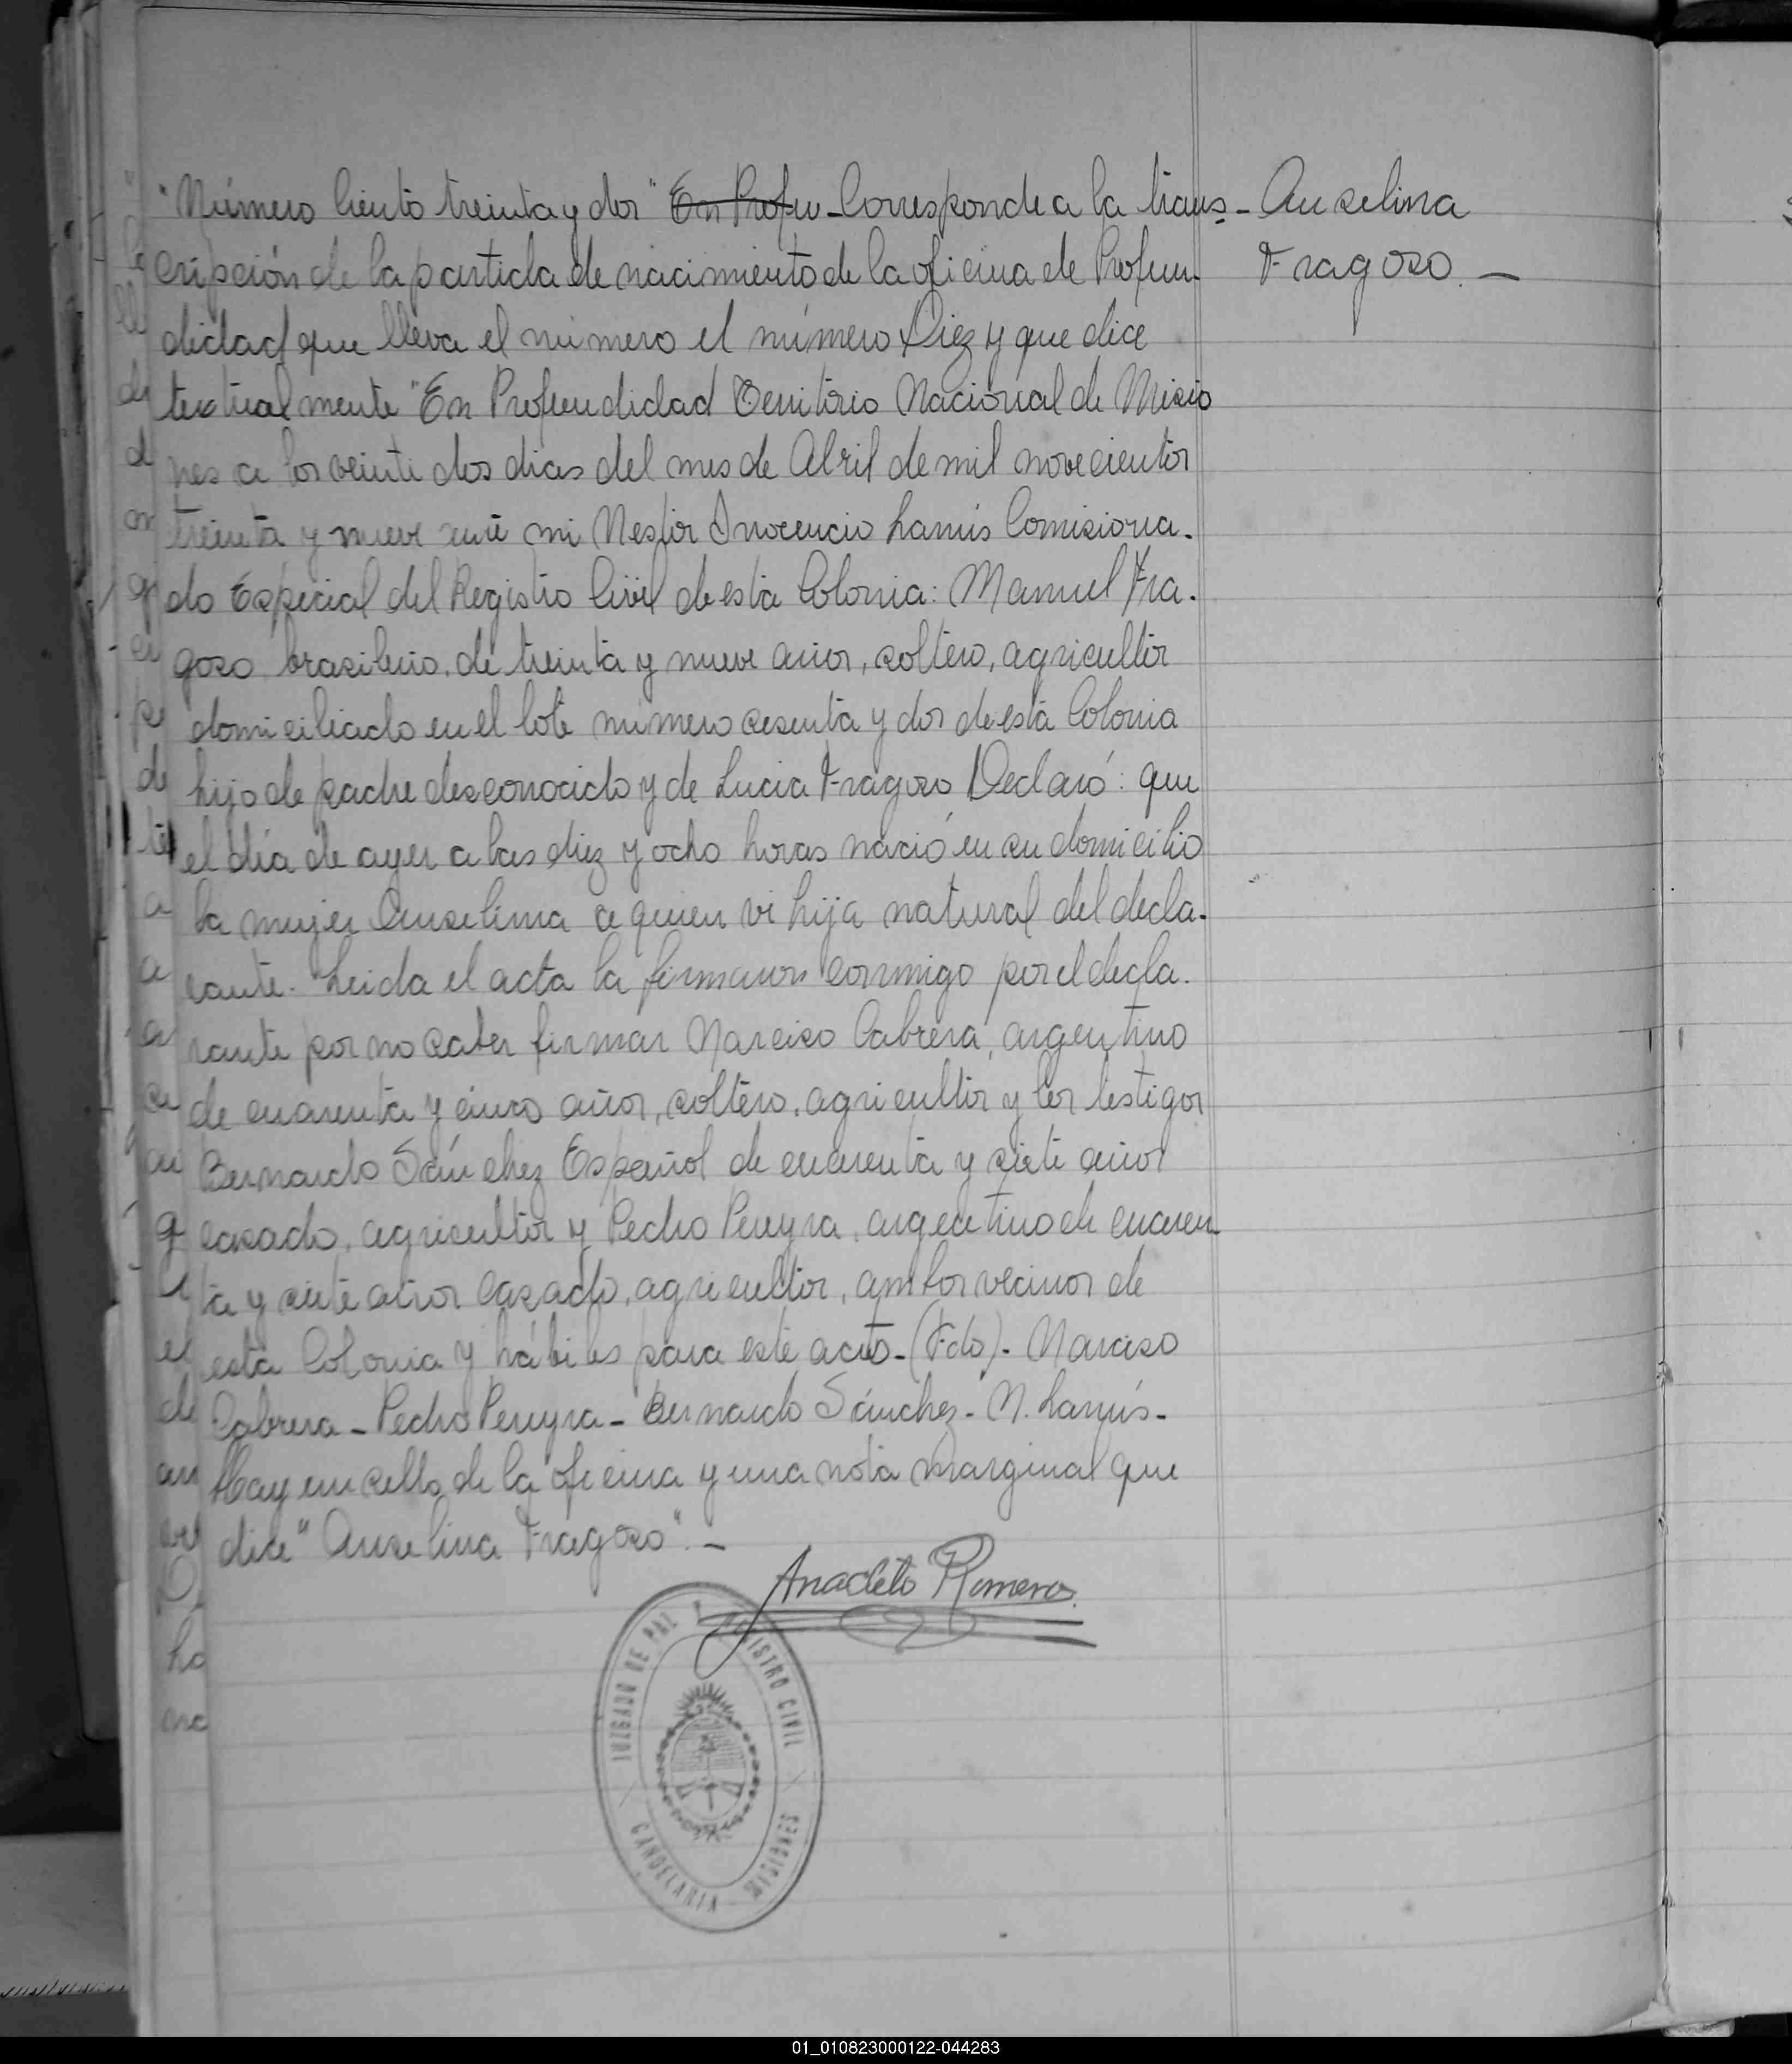 "Número Ciento treinta y dos" En Profun - Corresponde a la trans-
cripción de la partida de nacimiento de la oficina de Profun-
didad que lleva el número el número Diez y que dice
textualmente "En Profundidad Territorio Nacional de Misio
nes a los veinti dos dias del mes de Abril de mil novecientos
treinta y nueve ante mi Nestor Inocencio Lanús Comisiona-
do Especial del Registro Civil de esta Colonia: Manuel Fra-
goso brasilero, de treinta y nueve años, soltero, agricultor
domiciliado en el lote número sesenta y dos de esta Colonia
hijo de padre desconocido y de Lucia Fragoso Declaró: que
el día de ayer a las diez y ocho horas nació en su domicilio
la mujer Anselina a quien vi hija natural del decla-
rante. Leida el acta la firmaron conmigo por el decla-
rante por no saber firmar Narciso Cabrera, argentino
de cuarenta y cinco años, soltero, agricultor y los testigos
Bernardo Sánchez Español de cuarenta y siete años
casado, agricultor y Pedro Pereyra, argentino de cuaren
ta y siete años casado, agricultor, ambos vecinos de
esta Colonia y hábiles para este acto - (Fdo). Narciso
Cabrera - Pedro Pereyra - Bernardo Sánchez - N. Lanús -
Hay un sello de la oficina y una nota marginal que
dice "Anselina Fragoso". -
Anselina
Fragoso. -
Anacleto Romero
JUZGADO DE PAZ Y REGISTRO CIVIL
CANDELARIA - MISIONES
01_010823000122-044283